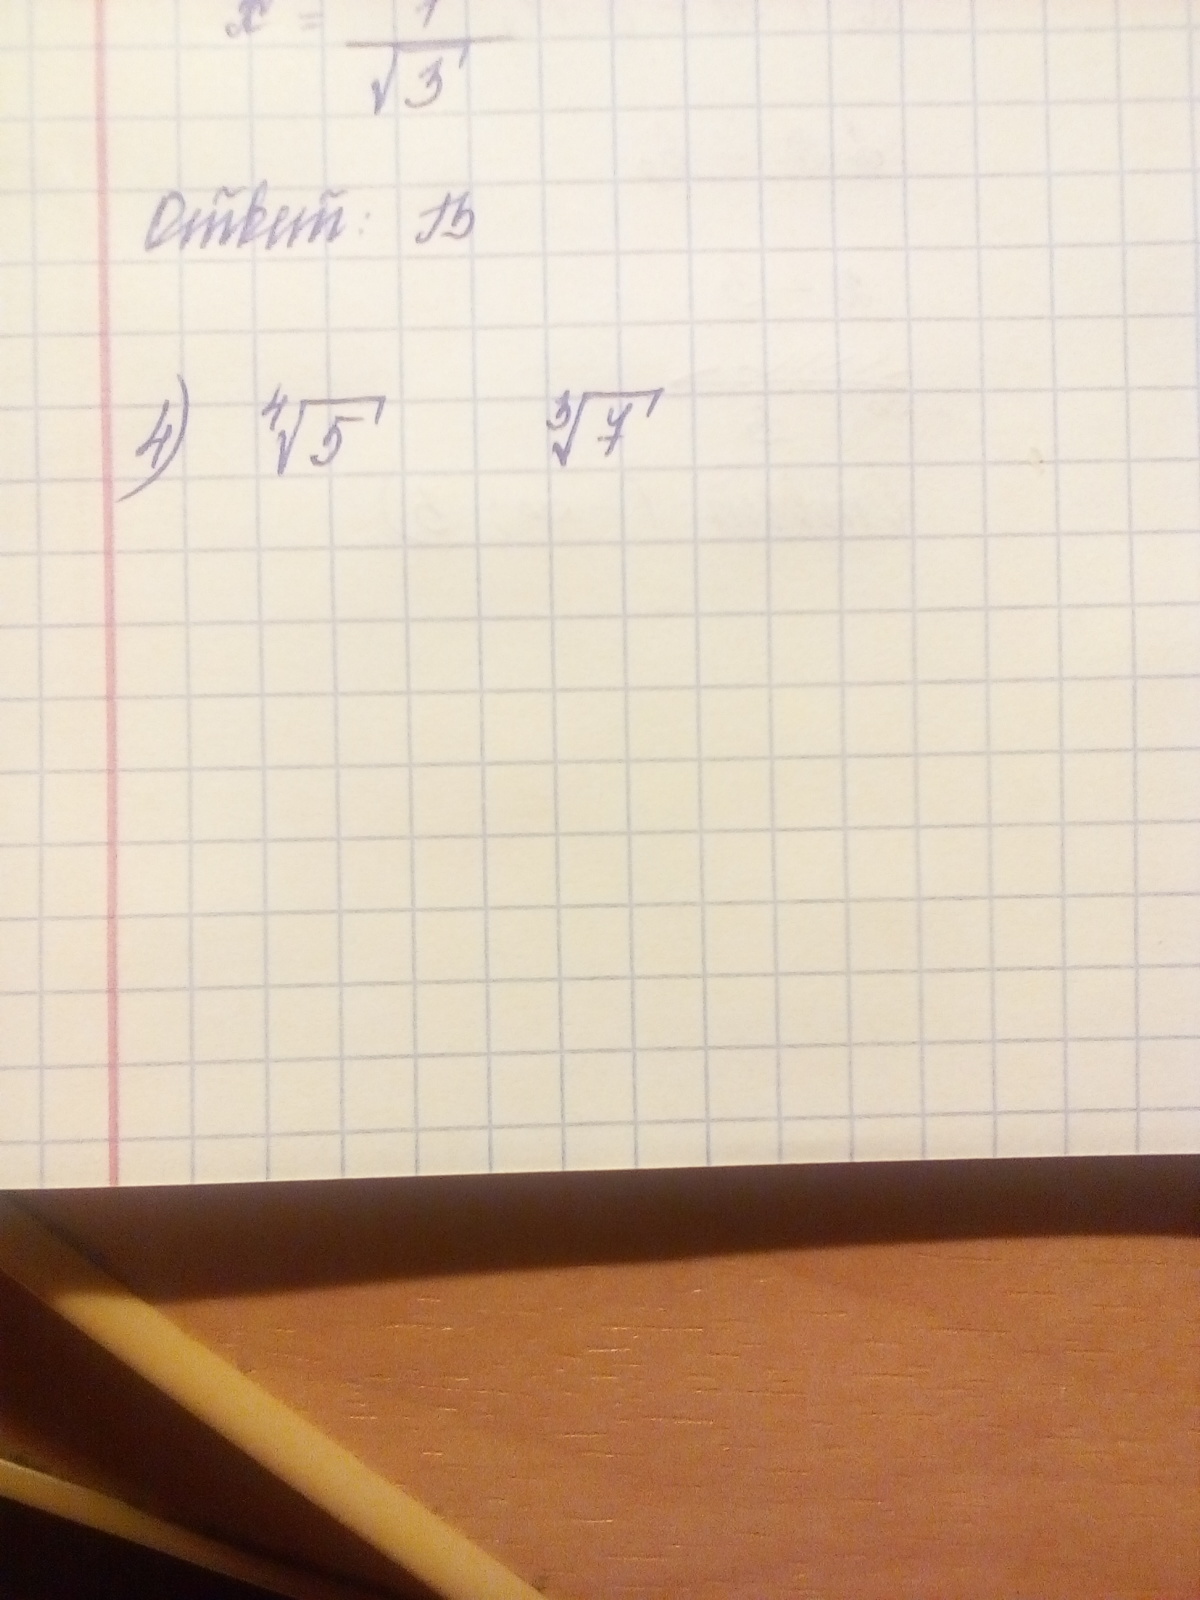 x = 1/√3
Ответ: В
4) ⁴√5 ³√7